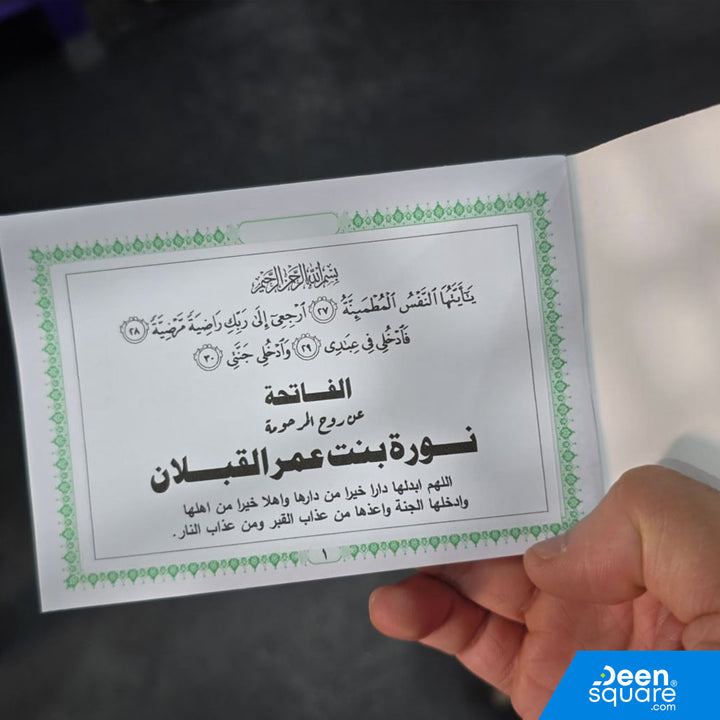 بسم الله الرحمن الرحيم
يَٰٓأَيَّتُهَا ٱلنَّفْسُ ٱلْمُطْمَئِنَّةُ ٢٧ ٱرْجِعِىٓ إِلَىٰ رَبِّكِ رَاضِيَةً مَّرْضِيَّةً ٢٨
فَٱدْخُلِى فِى عِبَٰدِى ٢٩ وَٱدْخُلِى جَنَّتِى ٣٠
الفاتحة
عن روح المرحومة
نورة بنت عمر القبلان
اللهم ابدلها دارا خيرا من دارها واهلا خيرا من اهلها
وادخلها الجنة واعذها من عذاب القبر ومن عذاب النار .
١
Deen
square®
.com